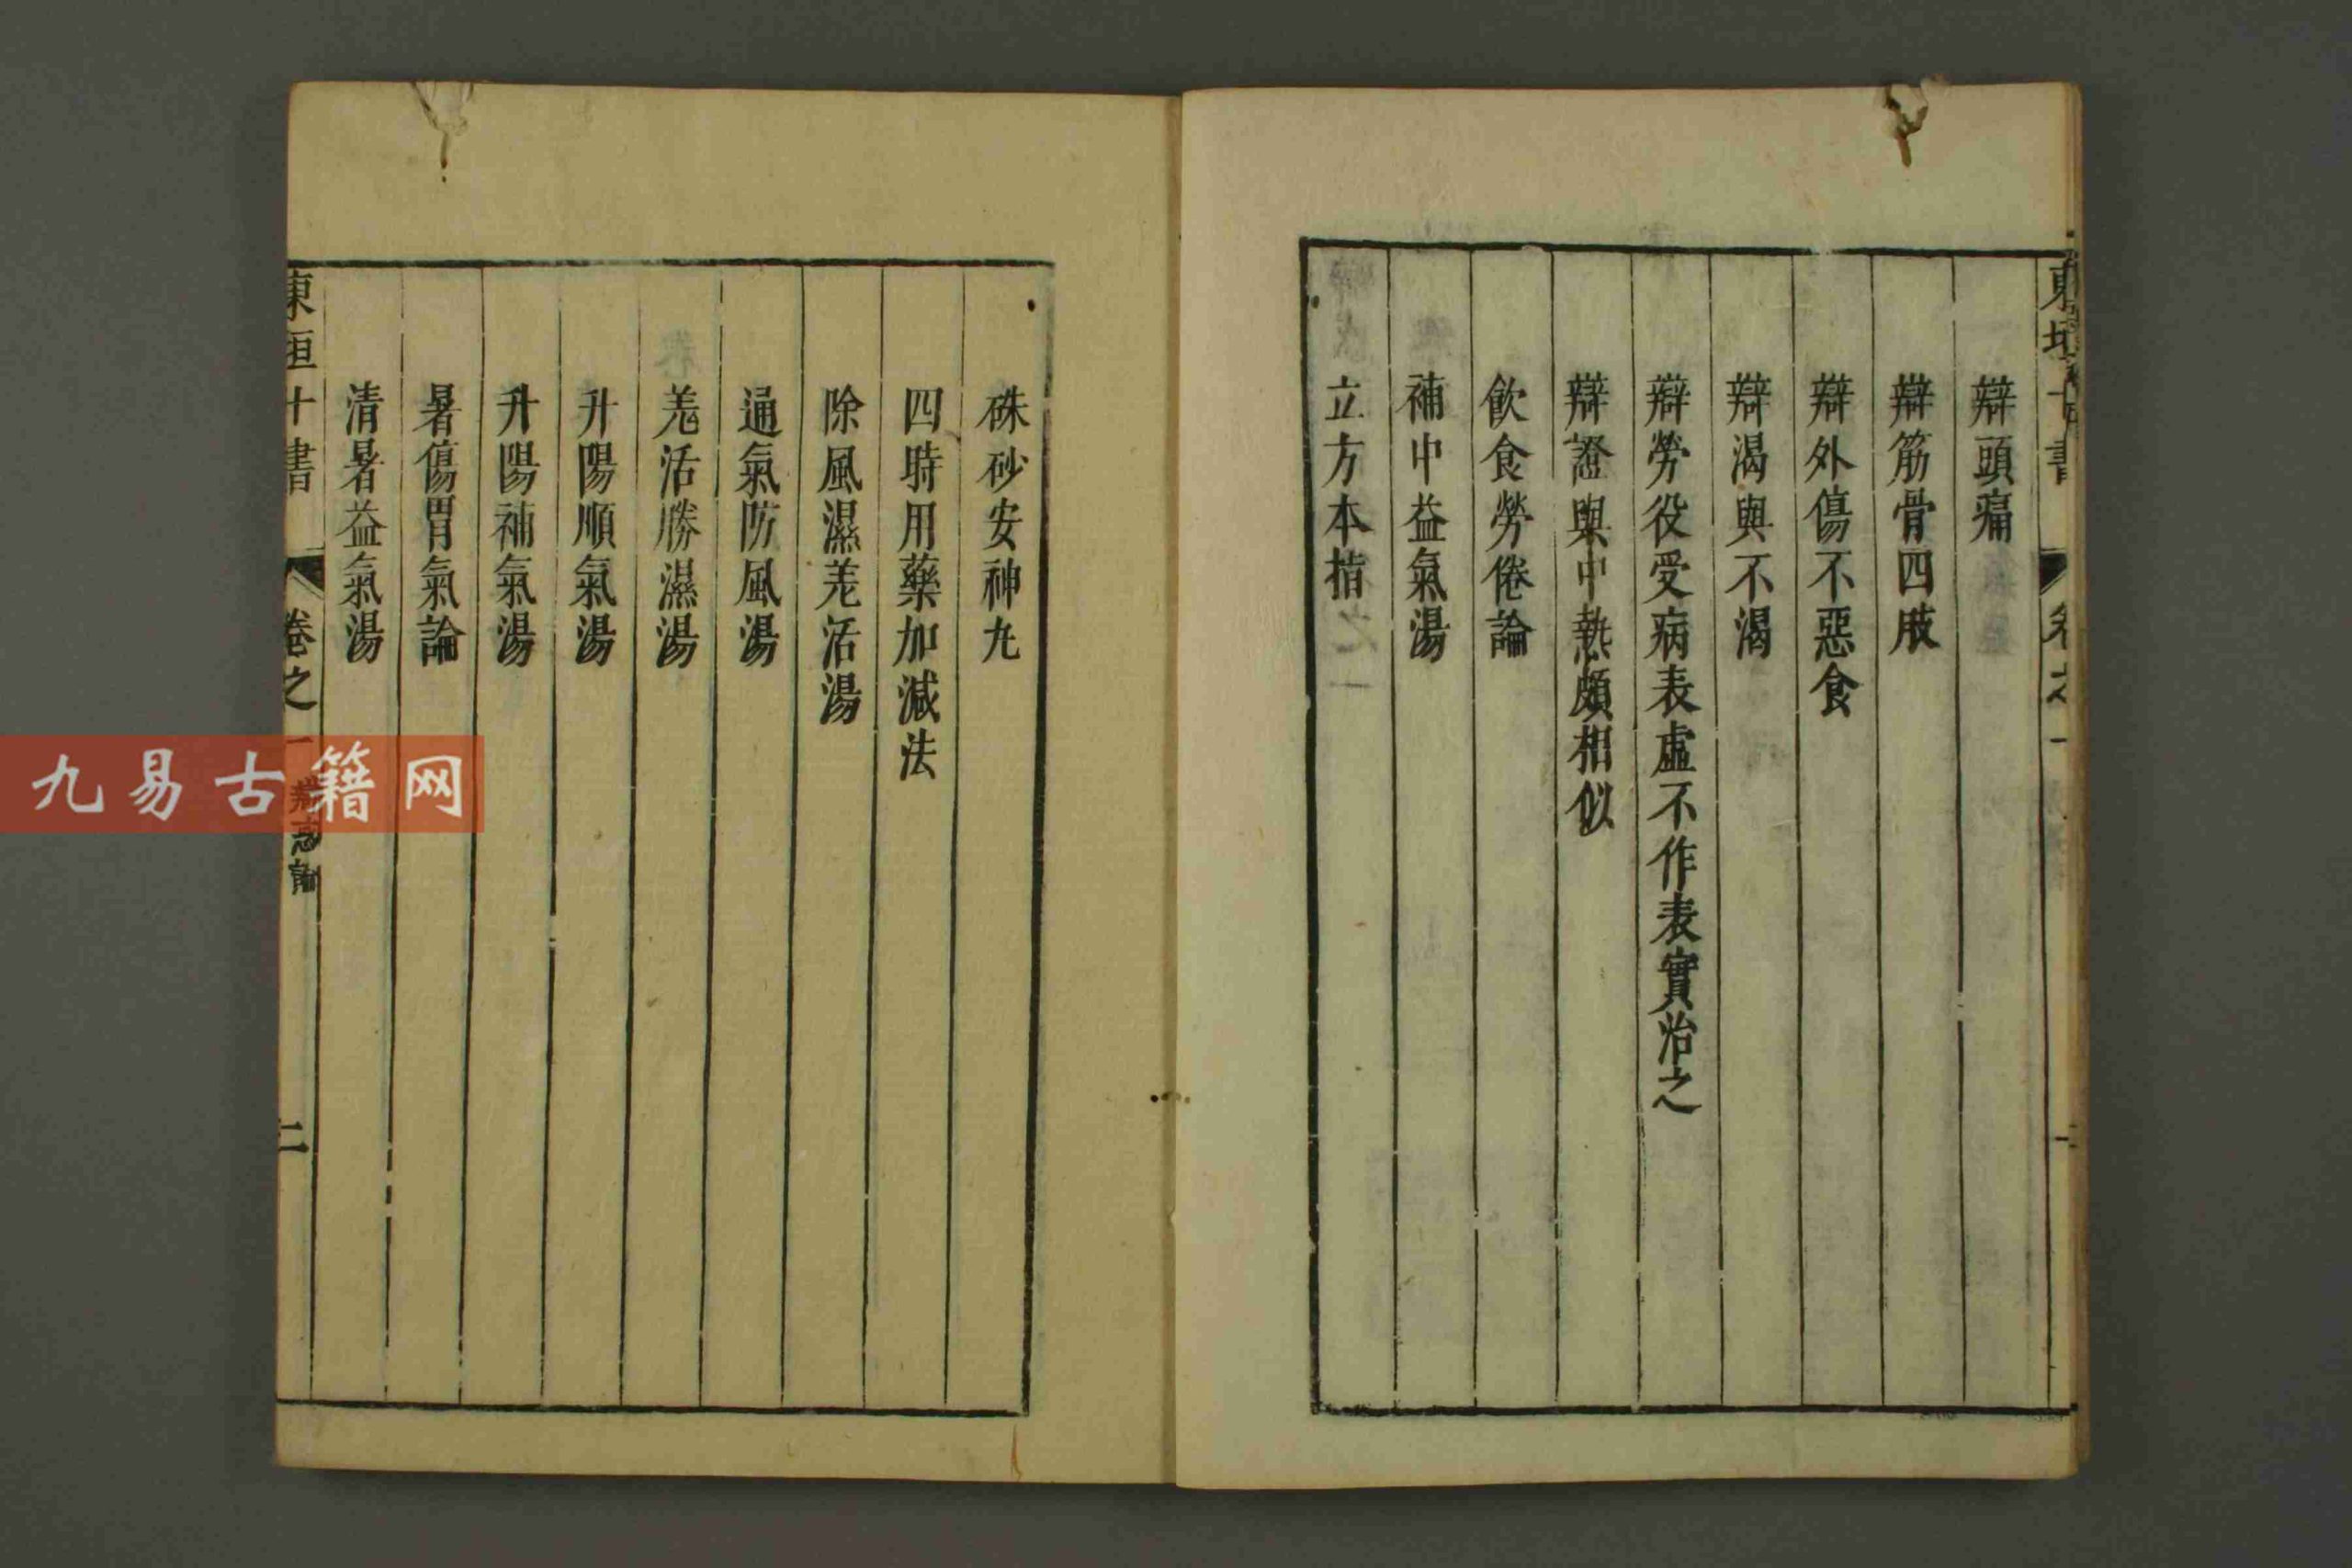 辯頭痛
辯筋骨四肢
辯外傷不惡食
辯渴與不渴
辯勞役受病表虛不作表實治之
辯證與中熱頗相似
飲食勞倦論
補中益氣湯
立方本指
硃砂安神丸
四時用藥加減法
除風濕羗活湯
通氣防風湯
羗活勝濕湯
升陽順氣湯
升陽補氣湯
暑傷胃氣論
清暑益氣湯
東垣十書 卷之一 辯惑論 二
九易古籍网